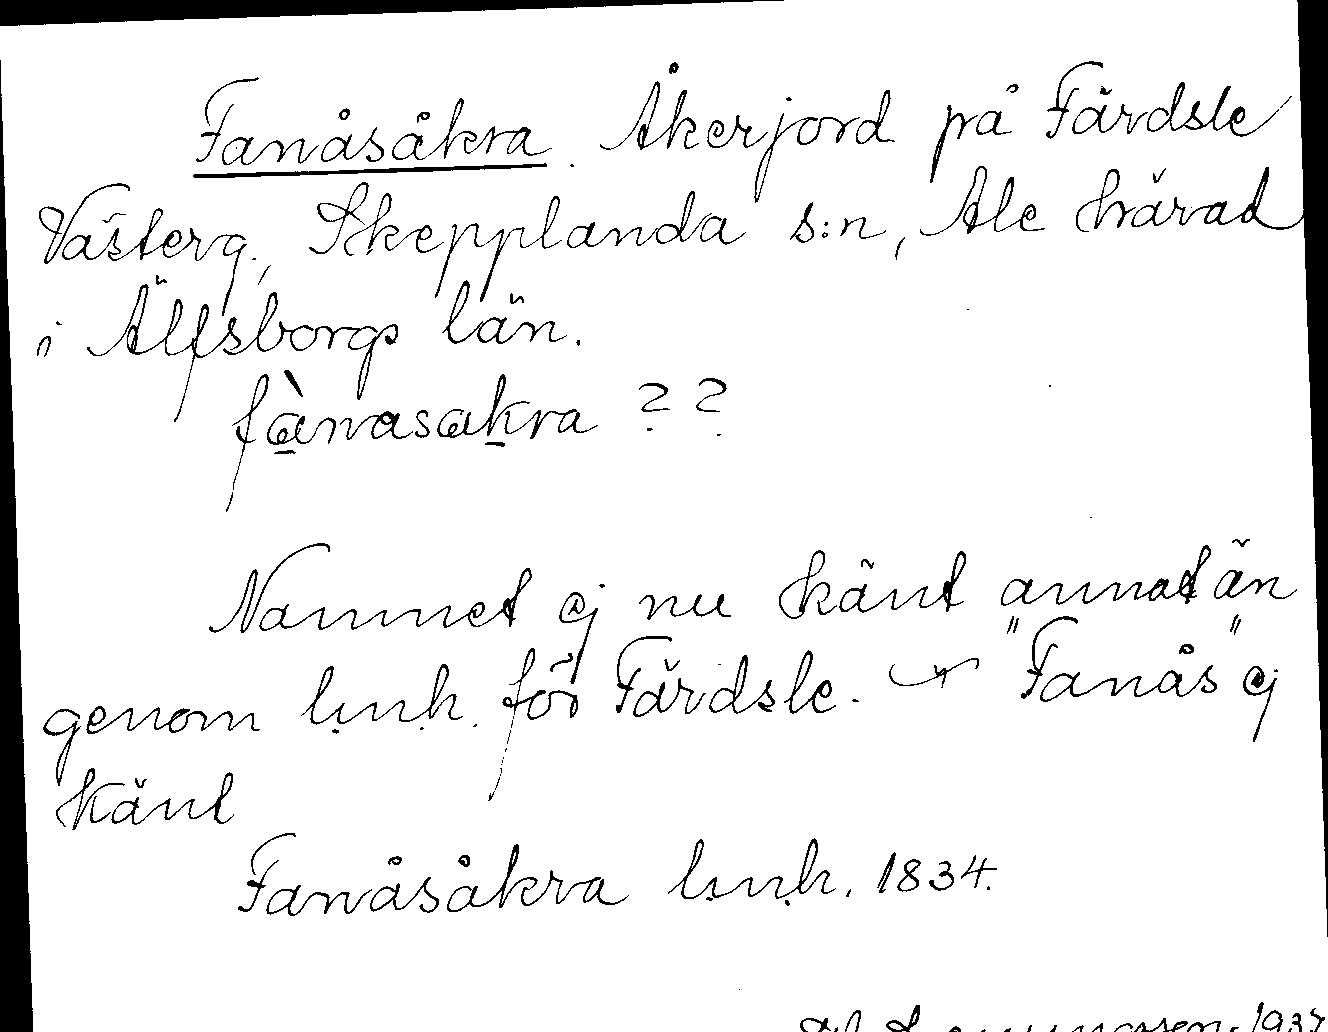 Fanåsåkra. Åkerjord på Färdsle
Västerg., Skepplanda s:n, Ale härad
i Älfsborgs län.
fànasakra ??
Namnet ej nu känt annat än
genom l.u.h. för Färdsle. "Fanås" ej
känt
Fanåsåkra l.u.h. 1834.
1937